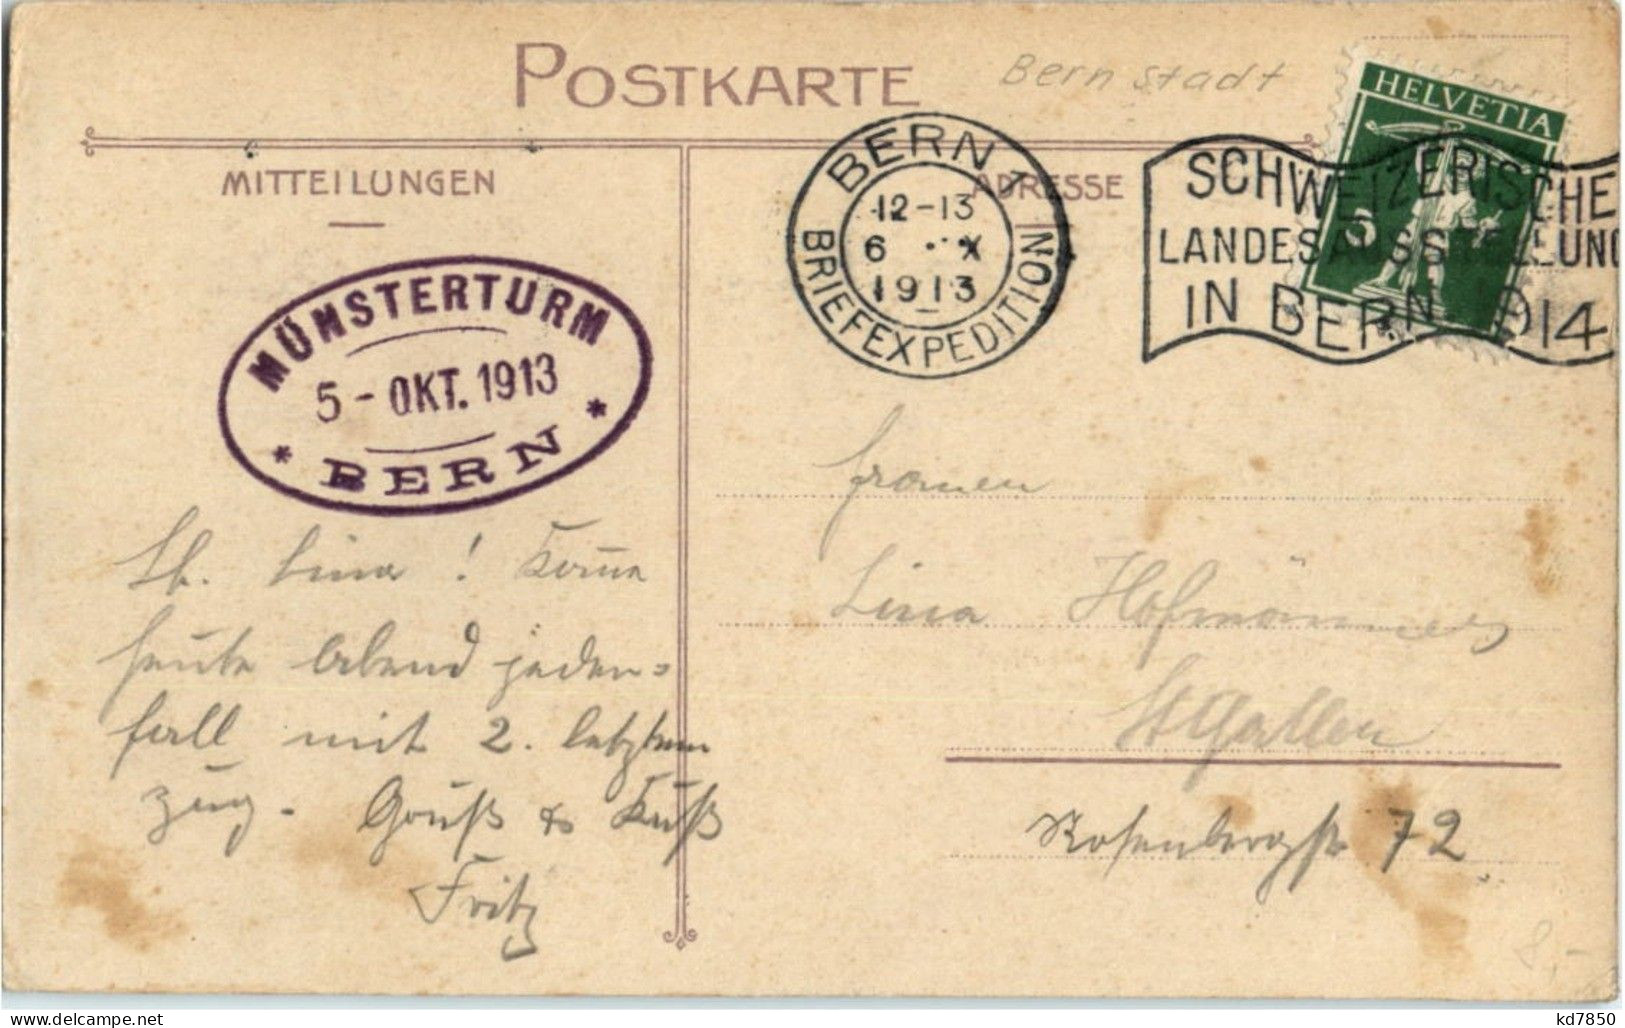 POSTKARTE
Bern Stadt
HELVETIA
5
MITTEILUNGEN
ADRESSE
BERN 1
12-13
6 X
1913
BRIEFEXPEDITION
SCHWEIZERISCHE
LANDESAUSSTELLUNG
IN BERN 1914
MÜNSTERTURM
5 - OKT. 1913
* BERN *
Lb. Lina! Komme
heute Abend jeden=
fall mit 2. letztem
Zug. Gruß & Kuß
Fritz
Lina
St Gallen
Rosenbergstr 72
8,-
kd7850